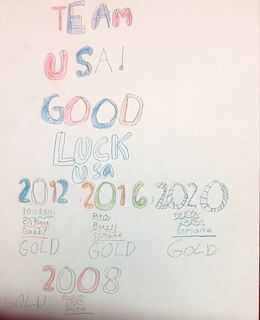 TEAM
USA!
GOOD
LUCK
USA
2012, 2016, 2020
London Rio, Tokyo
England Brazil
Gabby Simone Simone
GOLD GOLD GOLD
2008
GOLD